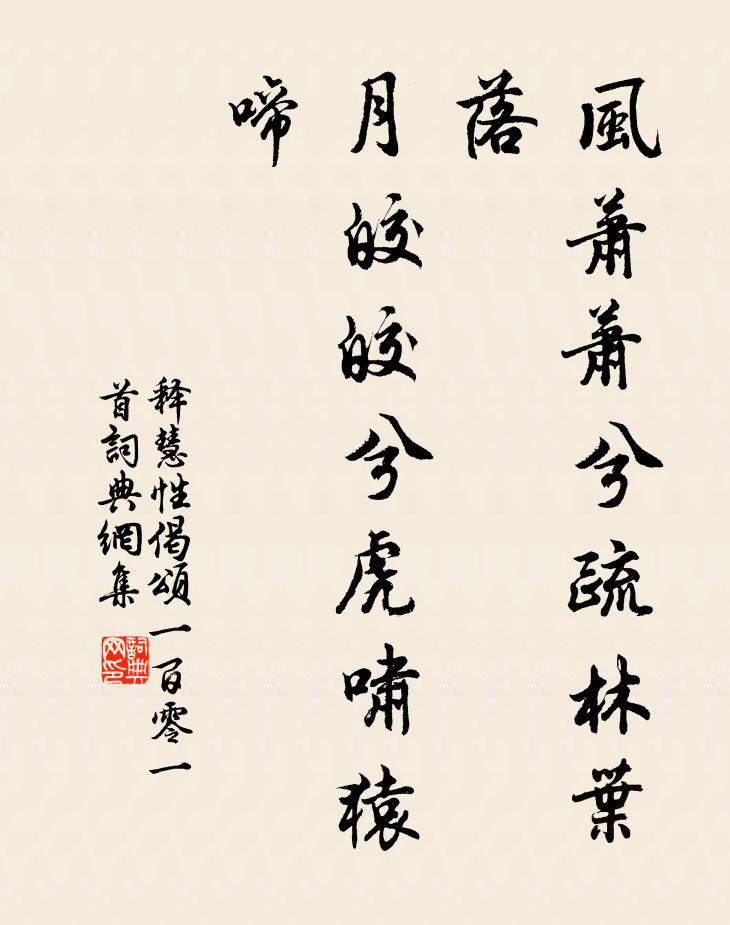 風蕭蕭兮疏林葉
落
月皎皎兮虎嘯猿
啼
释慧性偈頌一百零一
首詞典網集
詞典
网印